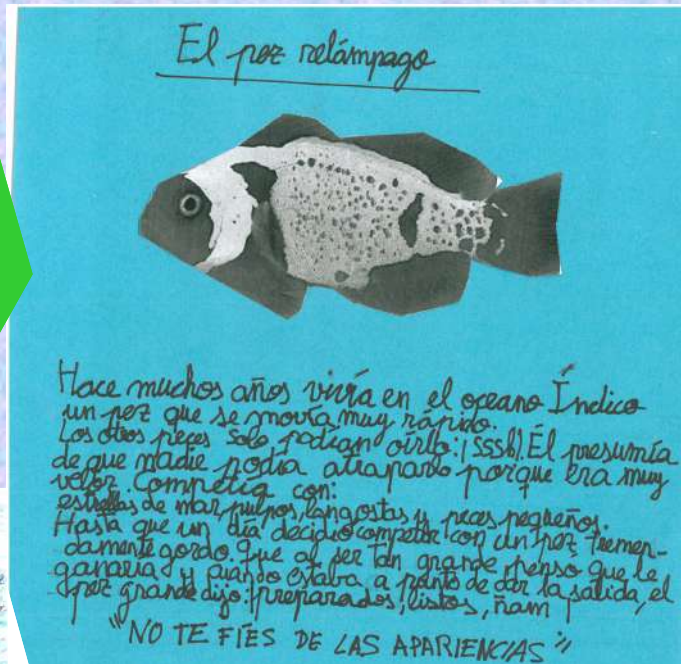 El pez relámpago
Hace muchos años vivía en el oceano Índico
un pez que se movía muy rápido.
Los otros peces solo podían oírlo:¡SSSh!. Él presumía
de que nadie podía atraparlo porque era muy
veloz. Competía con:
estrellas de mar, pulpos, langostas y peces pequeños.
Hasta que un día decidio competir con un pez tremen-
damente gordo. Que al ser tan grande penso que le
ganaria y cuando estaba a punto de dar la salida, el
pez grande dijo: preparados, listos, ñam
"NO TE FÍES DE LAS APARIENCIAS"